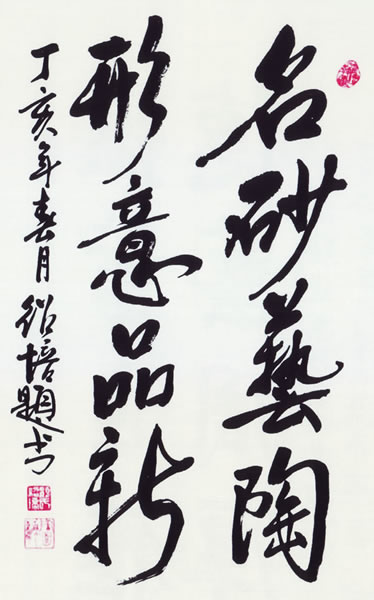 名砂藝陶
形意品新
丁亥年春月绍培题书